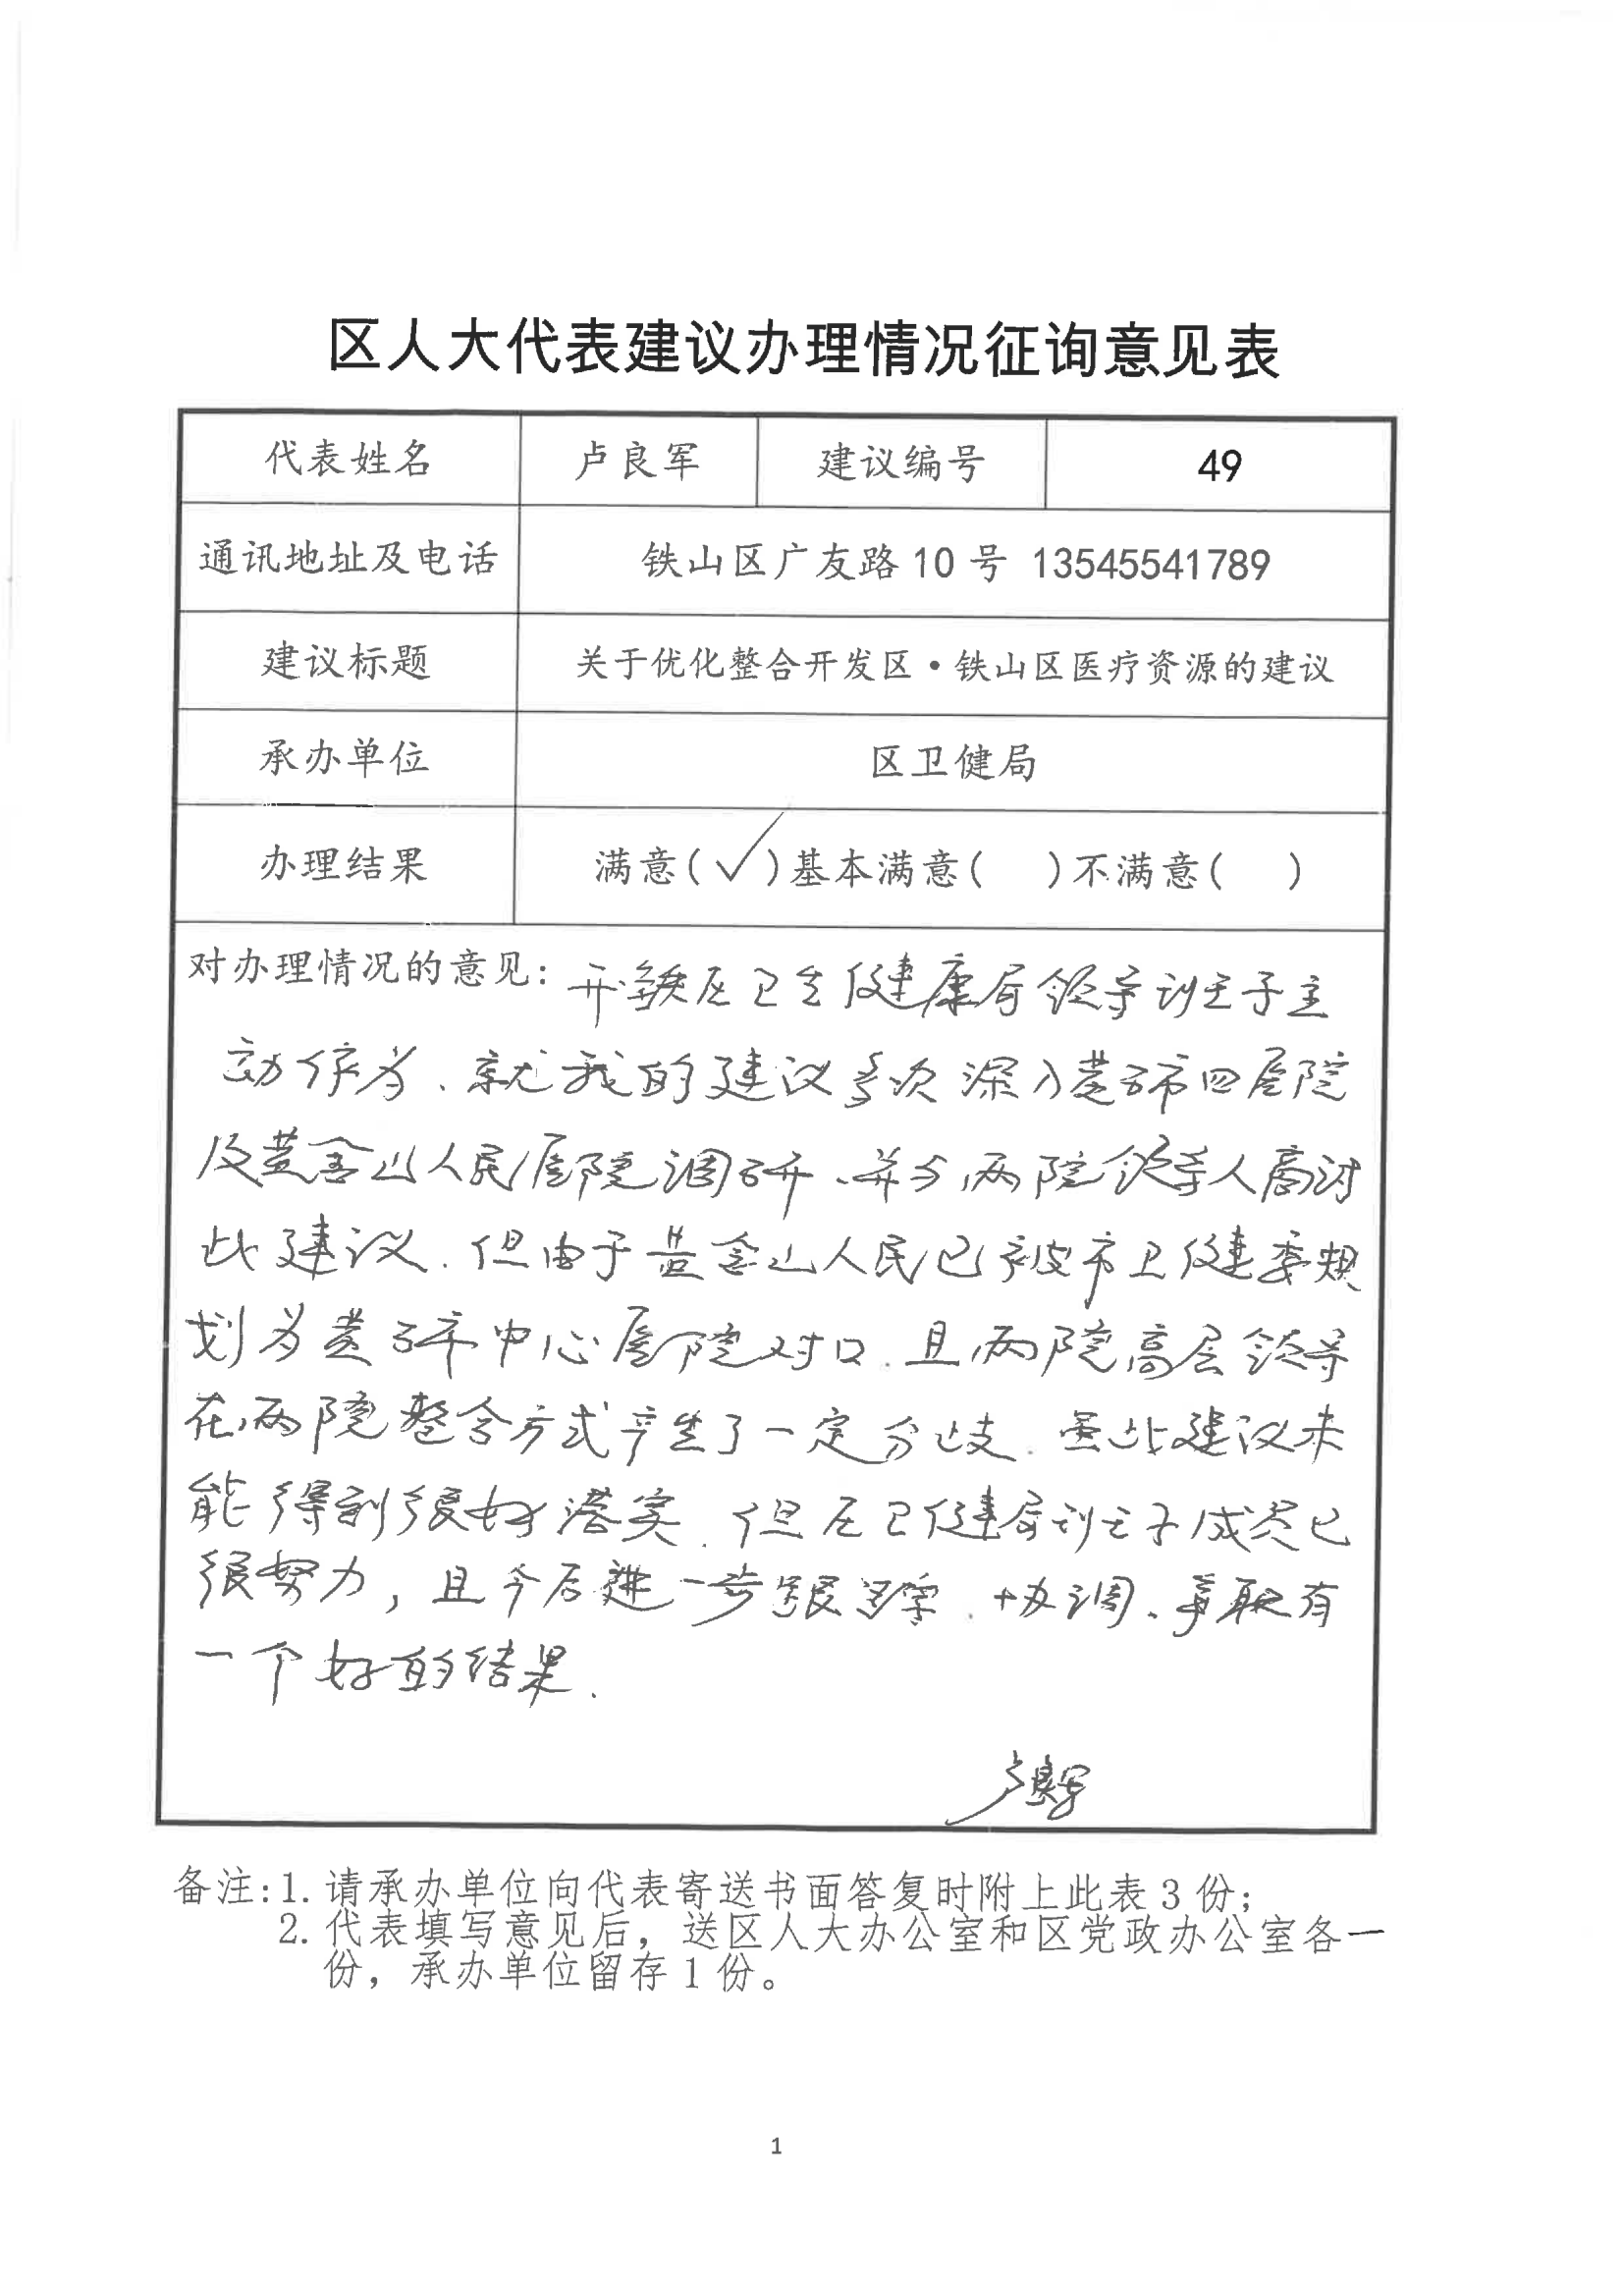 区人大代表建议办理情况征询意见表
代表姓名 卢良军 建议编号 49
通讯地址及电话 铁山区广友路10号 13545541789
建议标题 关于优化整合开发区·铁山区医疗资源的建议
承办单位 区卫健局
办理结果 满意(√)基本满意( )不满意( )
对办理情况的意见: 开铁区卫生健康局领导班子主
动作为、就我的建议多次深入黄石市四医院
及黄金山人民医院调研、并与两院领导人商讨
此建议.但由于黄金山人民已被市卫健委规
划为黄石市中心医院对口.且两院高层领导
在两院整合方式产生了一定分歧.虽此建议未
能得到很好落实.但区卫健局班子成员已
很努力,且今后进一步跟踪.协调、争取有
一个好的结果.
卢良军
备注:1.请承办单位向代表寄送书面答复时附上此表3份;
2.代表填写意见后,送区人大办公室和区党政办公室各一
份,承办单位留存1份。
1